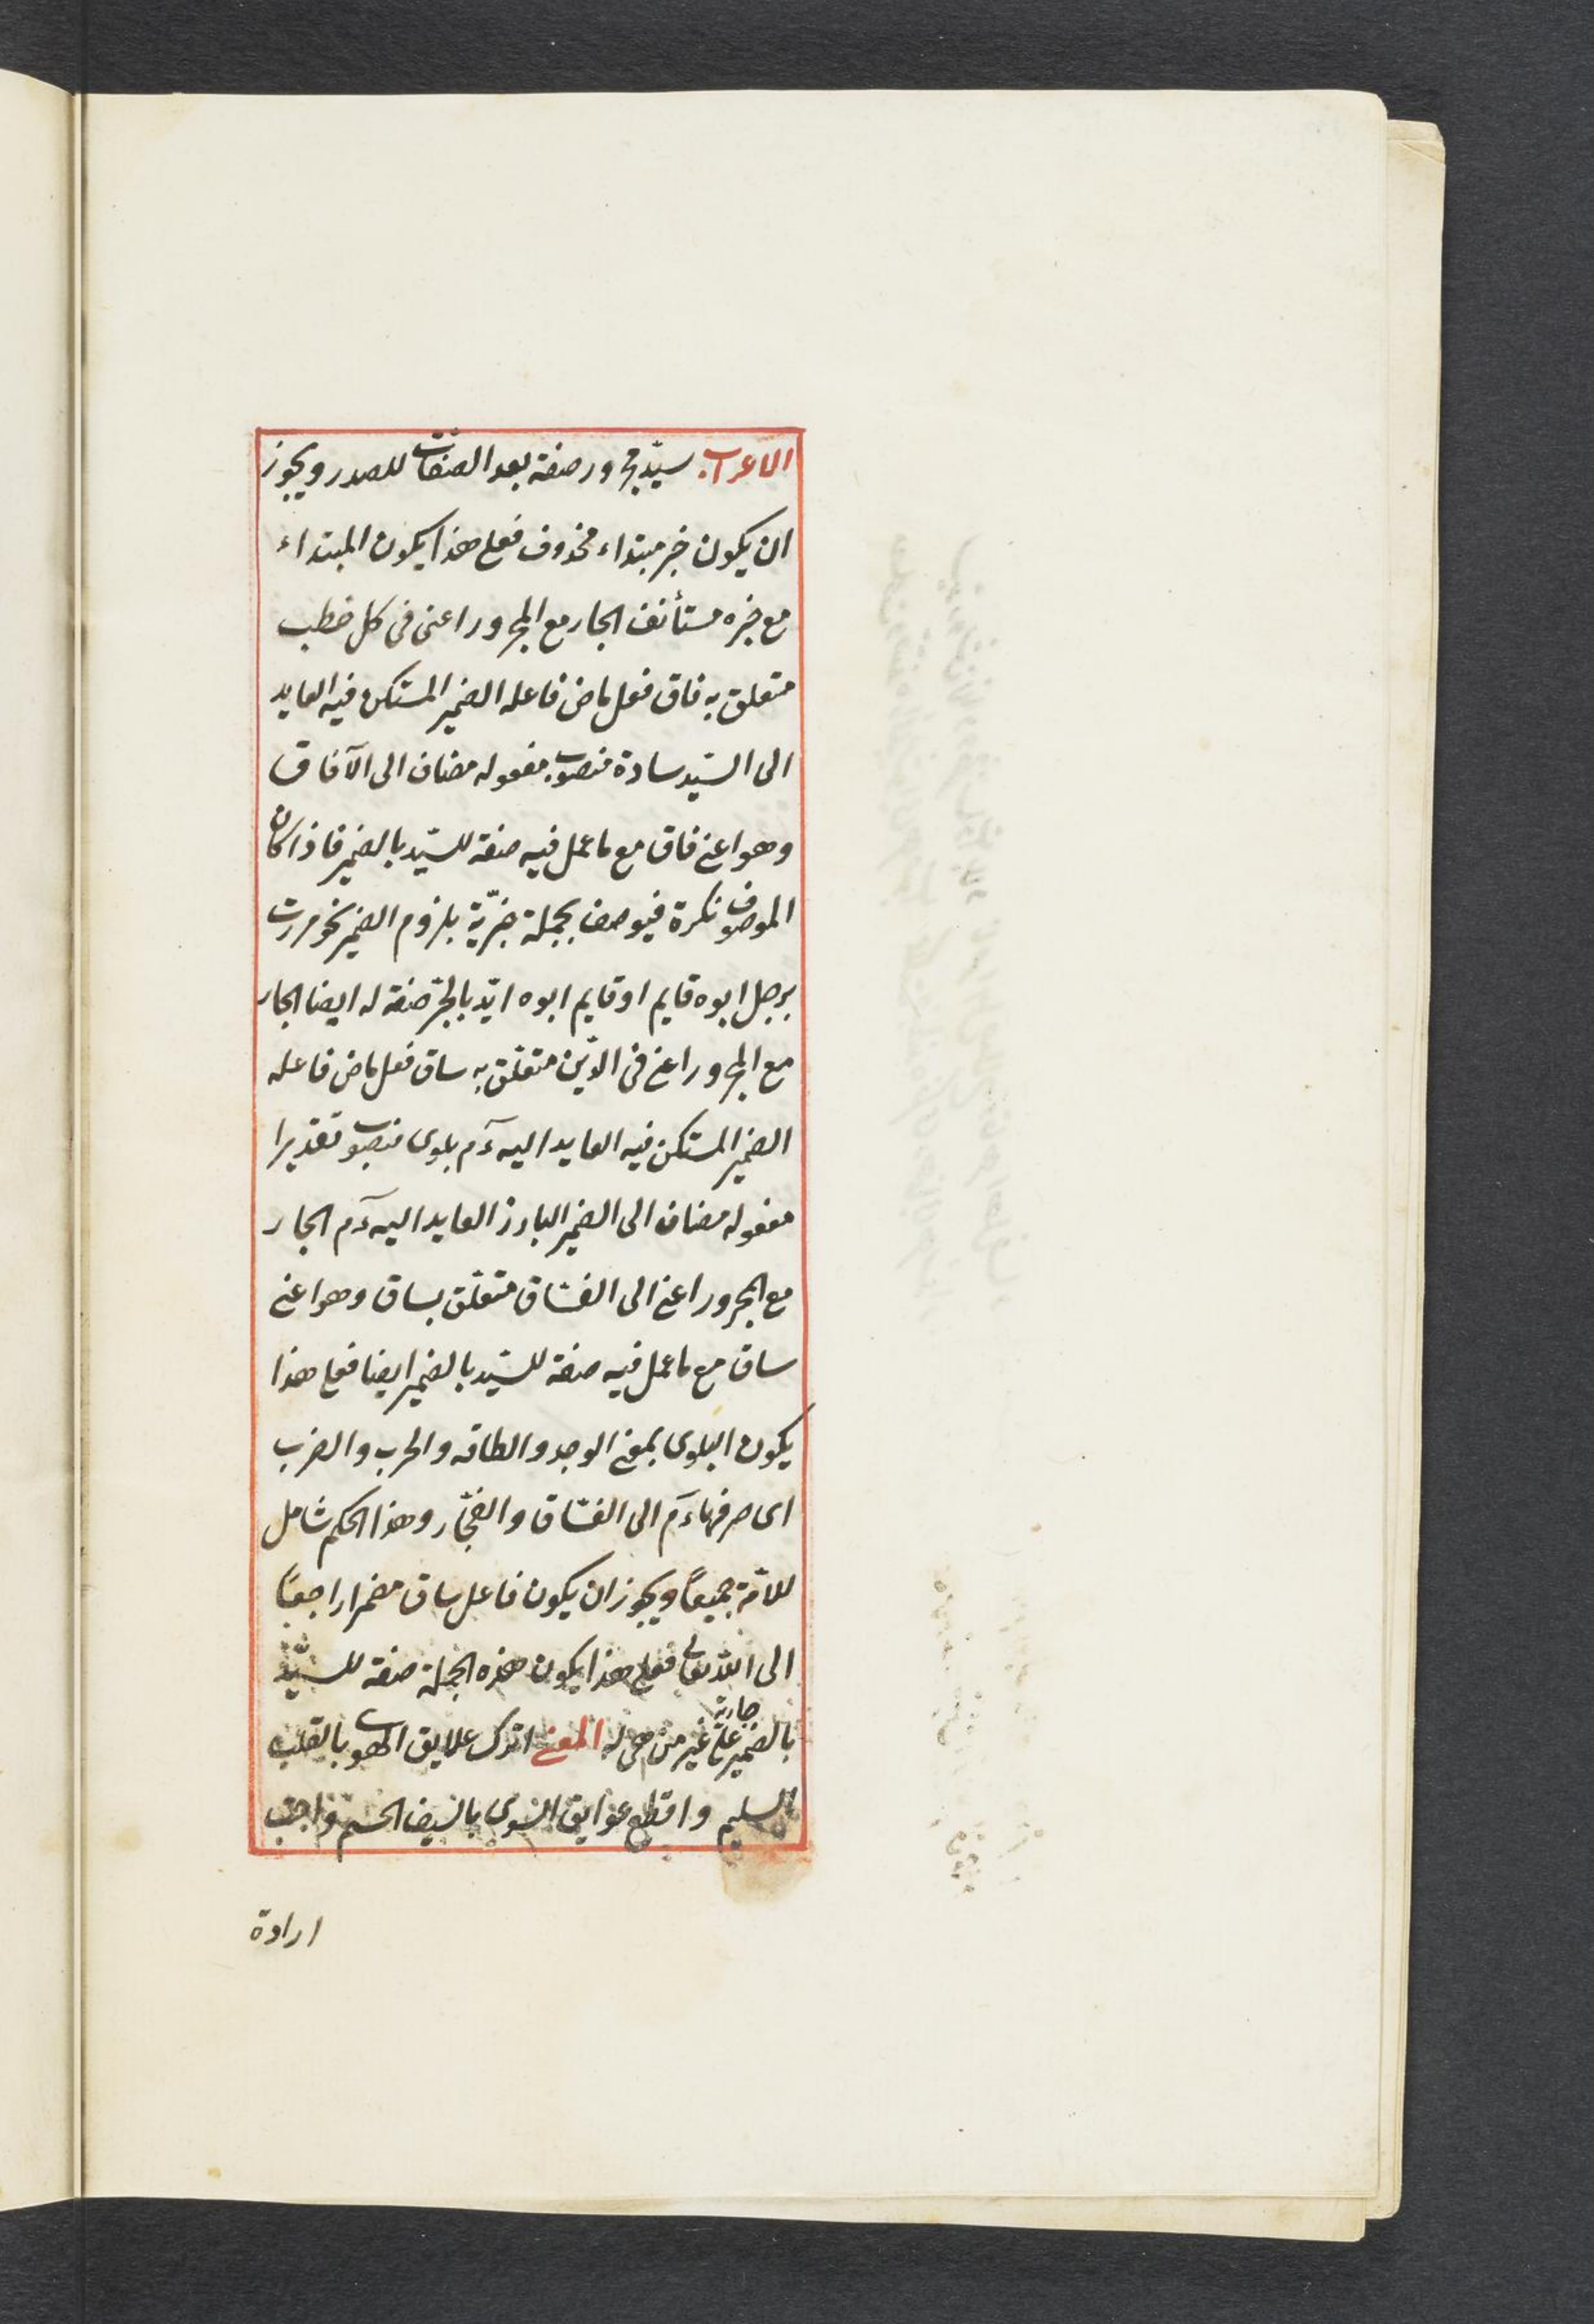 الاعراب. سيّد مجرور صفة بعد الصفات للصدر ويجوز
ان يكون خبر مبتداء محذوف فعلى هذا يكون المبتداء
مع خبره مستأنف الجار مع المجرور اعنى فى كل خطب
متعلق به فاق فعل ماض فاعله الضمير المستكن فيه العايد
الى السيّد سادة منصوب مفعوله مضاف الى الآفاق
وهو اعنى فاق مع ما عمل فيه صفة للسيّد بالضمير فاذا كان
الموصوف نكرة فيوصف بجملة خبريّة بلزوم الضمير نحو مررت
برجل ابوه قايم او قايم ابوه ايّد بالجرّ صفة له ايضا الجار
مع المجرور اعنى فى الدّين متعلّق به ساق فعل ماض فاعله
الضمير المستكن فيه العايد اليه ءم بلوى منصوب تقديرا
مفعوله مضاف الى الضمير البارز العايد اليه ءم الجار
مع المجرور اعنى الى الفسّاق متعلّق بساق وهو اعنى
ساق مع ما عمل فيه صفة للسيّد بالضمير ايضا فعلى هذا
يكون البلوى بمعنى الوجد والطاقه والحرب والضرب
اى صرفها ءم الى الفسّاق والفجّار وهذا الحكم شامل
للامّة جميعًا ويجوز ان يكون فاعل ساق مضمرا راجعًا
الى الله تعالى فعلى هذا يكون هذه الجملة صفة للسيّد
بالضمير جارية على غير من هى له المعنى اترك علايق الهوى بالقلب
السليم واقطع عوايق السوى بالسيف الحسم واجتب
ارادة